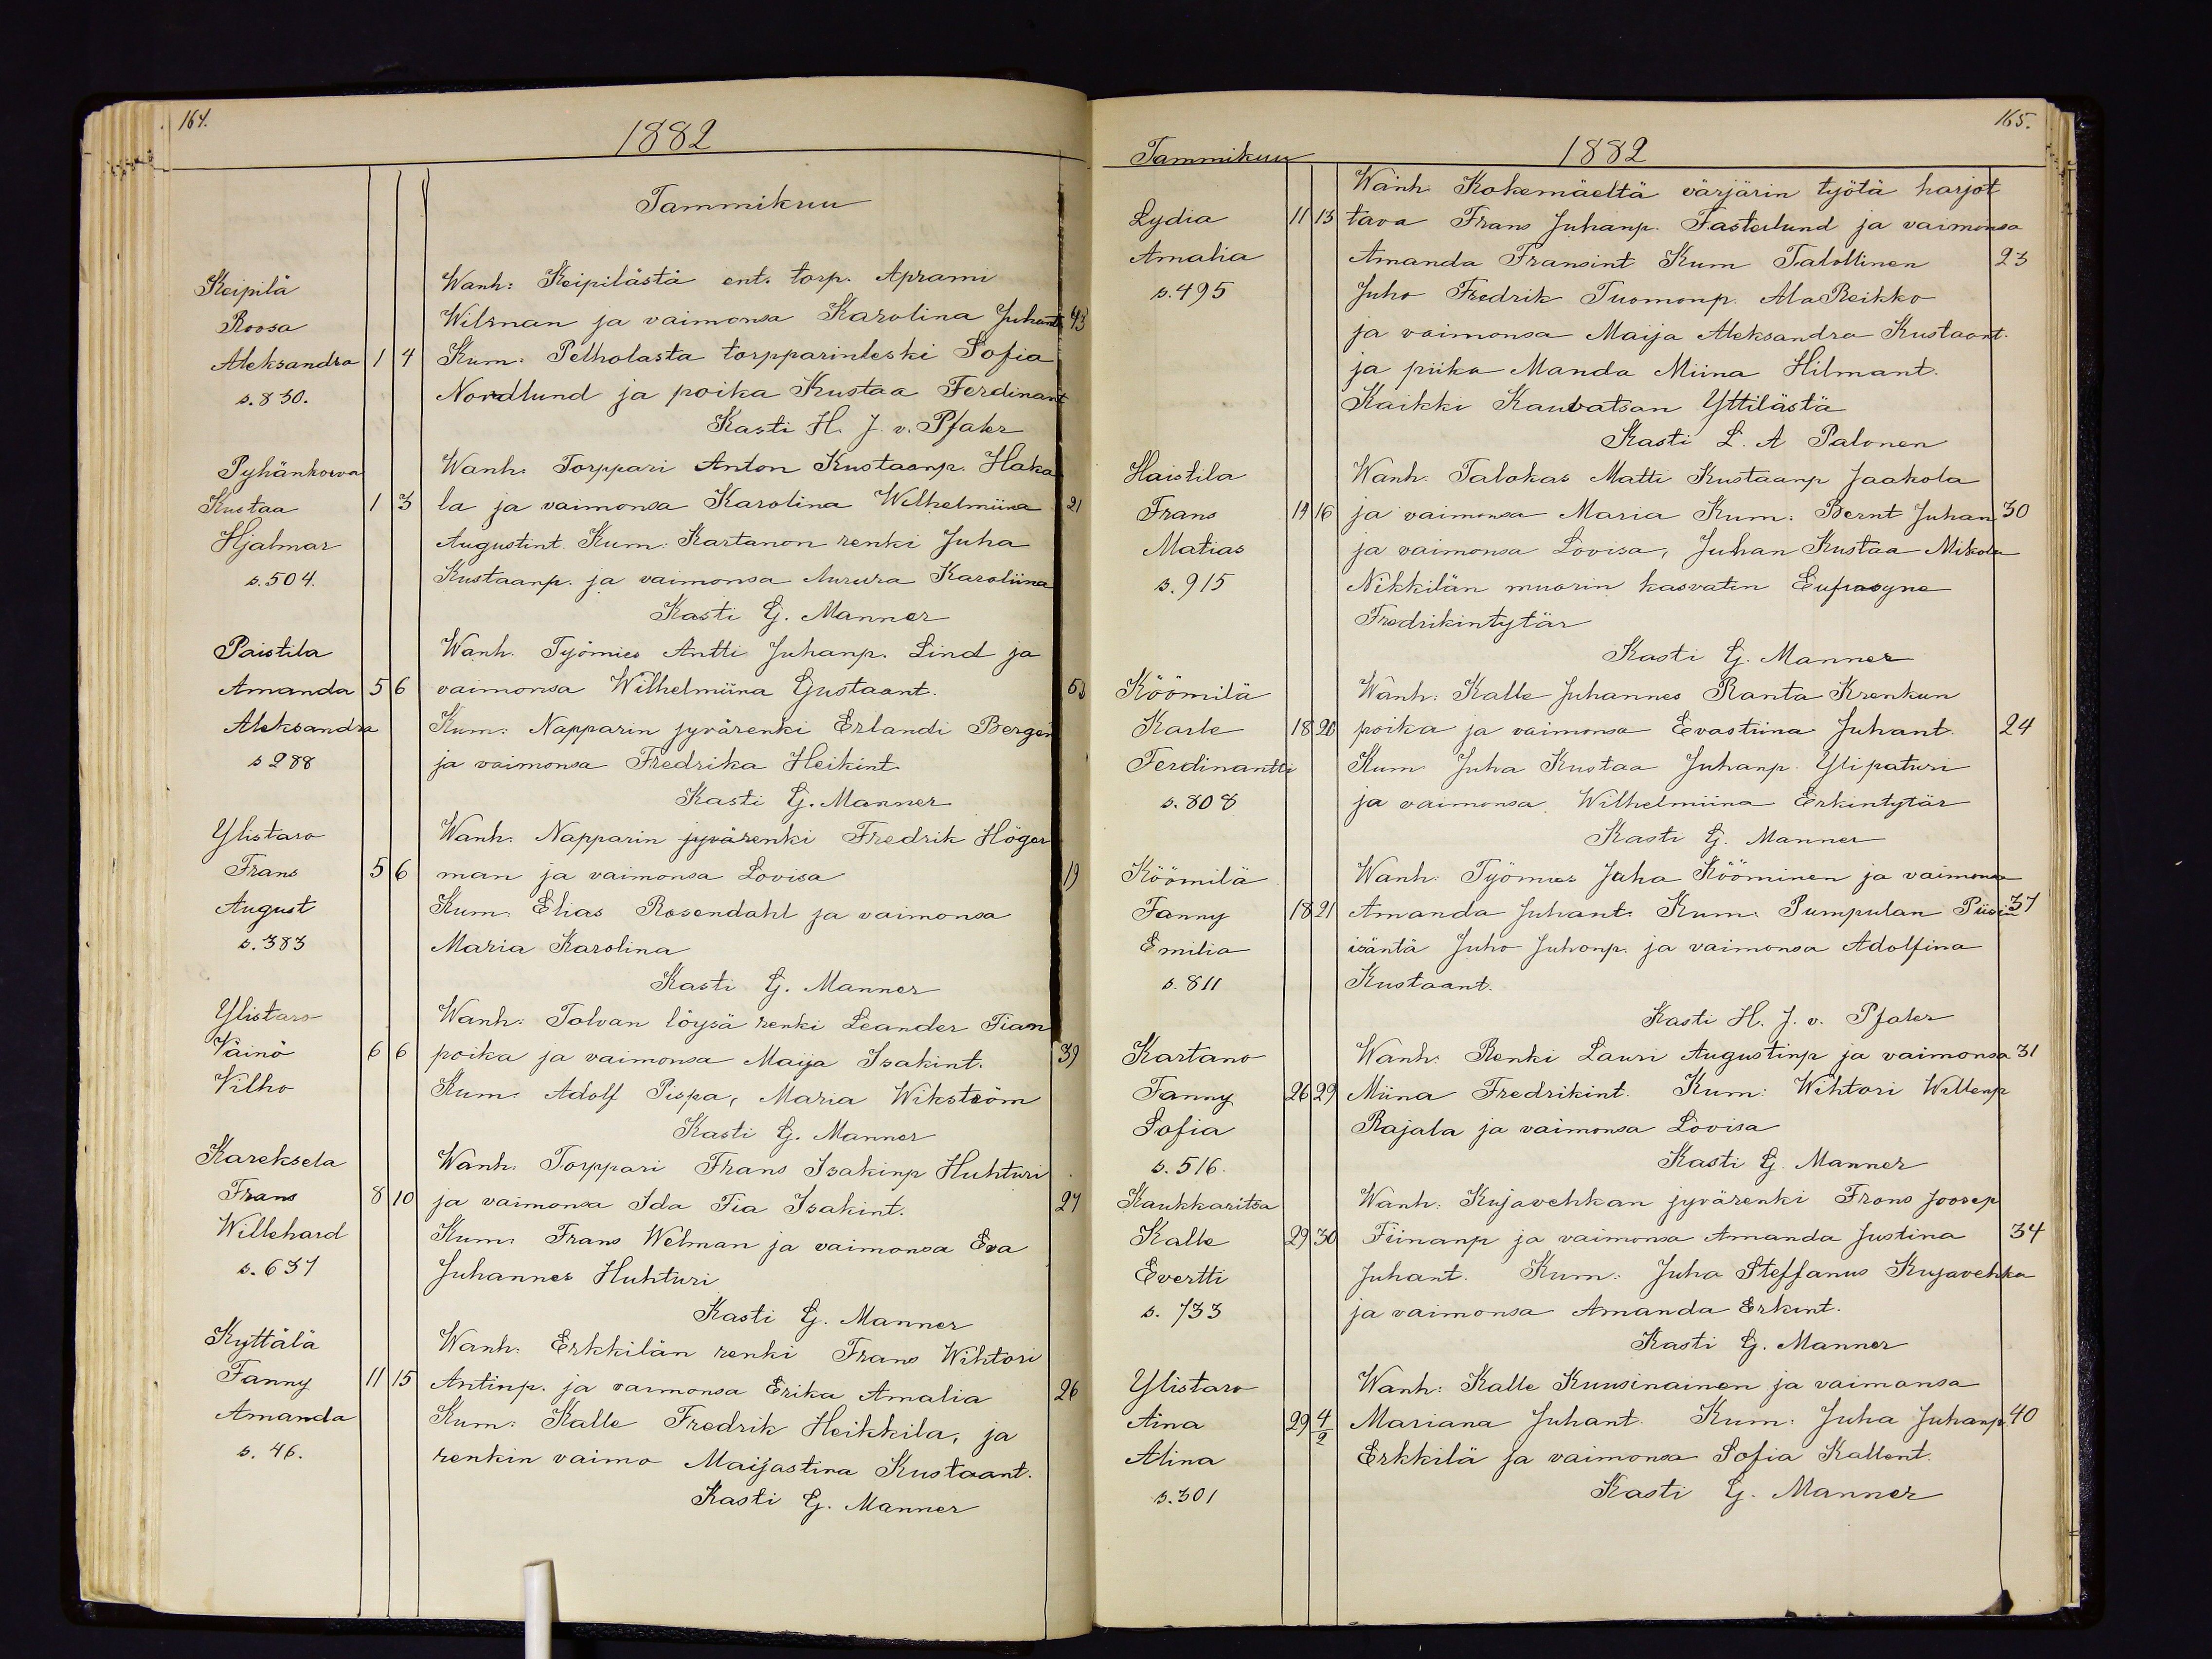 164.
1882
Tammikuu
Keipilä Wanh: Keipilästä ent. torp. Aprami
Roosa Wilsman ja vaimonsa Karolina Juhant. 43
Aleksandra 1 4 Kum: Pelholasta torpparinleski Sofia
s. 830. Nordlund ja poika Kustaa Ferdinant
Kasti H. J. v. Pfaler
Pyhänkorva Wanh. Torppari Anton Kustaanp. Haka
Kustaa 1 3 la ja vaimonsa Karolina Wilhelmiina 21
Hjalmar Augustint. Kum: Kartanon renki Juha
s. 504. Kustaanp. ja vaimonsa Aurura Karoliina
Kasti G. Manner
Paistila Wanh. Työmies Antti Juhanp. Lind ja
Amanda 5 6 vaimonsa Wilhelmiina Gustaant.
Aleksandra Kum: Napparin jyvärenki Erlandi Bergen
s 288 ja vaimonsa Fredrika Heikint.
Kasti G. Manner
Ylistaro Wanh. Napparin jyvärenki Fredrik Höger
Frans 5 6 man ja vaimonsa Lovisa 19
August Kum: Elias Rosendahl ja vaimonsa
s. 383 Maria Karolina
Kasti G. Manner
Ylistaro Wanh: Tolvan löysä renki Leander Fian
Väinö 6 6 poika ja vaimonsa Maija Isakint. 39
Vilho Kum: Adolf Pispa, Maria Wikström
Kasti G. Manner
Kareksela Wanh. Torppari Frans Isakinp Huhturi
Frans 8 10 ja vaimonsa Ida Fia Isakint. 27
Willehard Kum: Frans Welman ja vaimonsa Eva
s. 637 Juhannes Huhturi
Kasti G. Manner
Kyttälä Wanh: Erkkilän renki Frans Wihtori
Fanny 11 15 Antinp. ja vaimonsa Erika Amalia 26
Amanda Kum: Kalle Fredrik Heikkila, ja
s. 46. renkin vaimo Maijastina Kustaant.
Kasti G. Manner
165.
Tammikuu 1882
Wanh. Kokemäeltä värjärin työtä harjot
Lydia 11 13 tava Frans Juhanp. Fasterlund ja vaimonsa
Amalia Amanda Fransint Kum Talollinen 23
s. 495 Juho Fredrik Tuomonp. AlaReikko
ja vaimonsa Maija Aleksandra Kustaant.
ja piika Manda Miina Hilmant.
Kaikki Kauvatsan Yttilästä
Kasti L. A Palonen
Haistila Wanh. Talokas Matti Kustaanp Jaakola
Frans 14 16 ja vaimonsa Maria Kum: Bernt Juhan 30
Matias ja vaimonsa Lovisa, Juhan Kustaa Mikola
s. 915 Nikkilän muorin kasvatin Eufrasyne
Fredrikintytär
Kasti G. Manner
Köömilä Wanh: Kalle Juhannes Ranta Krenkun
Karle 18 20 poika ja vaimonsa Evastiina Juhant. 24
Ferdinantti Kum Juha Kustaa Juhanp. Ylipaturi
s. 808 ja vaimonsa Wilhelmiina Erkintytär
Kasti G. Manner
Köömilä Wanh: Työmies Juha Kööminen ja vaimonsa
Fanny 18 21 Amanda Juhant. Kum. Pumpulan Piisin 37
Emilia isäntä Juho Juhonp. ja vaimonsa Adolfina
s. 811 Kustaant.
Kasti H. J. v. Pfaler
Kartano Wanh: Renki Lauri Augustinp ja vaimonsa 31
Fanny 26 29 Miina Fredrikint. Kum: Wihtori Willenp
Sofia Rajala ja vaimonsa Lovisa
s. 516. Kasti G. Manner
Kaukkaritsa Wanh: Kujavehkan jyvärenki Frans Joosep
Kalle 29 30 Fiinanp ja vaimonsa Amanda Justina 34
Evertti Juhant. Kum: Juha Steffanus Kujavehka
s. 733 ja vaimonsa Amanda Erkint.
Kasti G. Manner
Ylistaro Wanh: Kalle Kuusinainen ja vaimonsa
Aina 29 4/2 Mariana Juhant. Kum: Juha Juhanp. 40
Alina Erkkilä ja vaimonsa Sofia Kallent.
s. 301 Kasti G. Manner